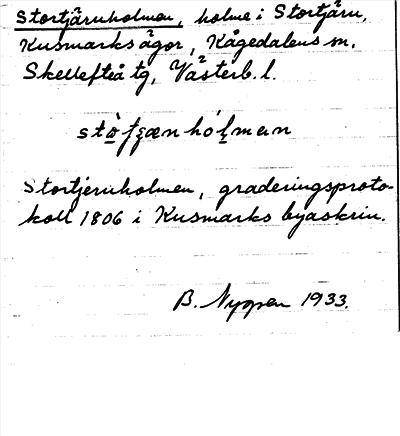 Stortjärnholmen, holme i Stortjärn,
Kusmarks ägor, Kågedalens sn,
Skellefteå tg, Västerb. l.
Stortjernholmen, graderingsproto-
koll 1806 i Kusmarks byaskrin.
B. Nygren 1933.